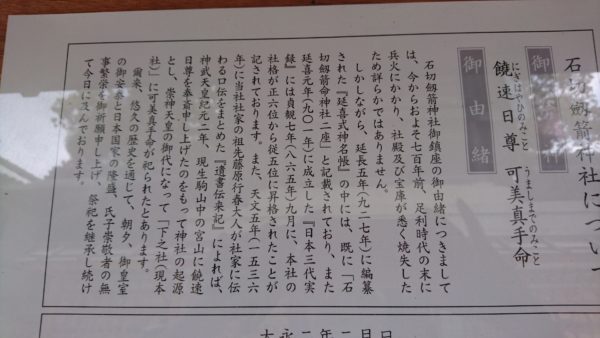 石切劔箭神社につい
御
饒速日尊 可美真手命
にぎはやひのみこと うましまでのみこと
御由緒
石切劔箭神社御鎮座の御由緒につきまして
は、今からおよそ七百年前、足利時代の末に
兵火にかかり、社殿及び宝庫が悉く焼失した
ため詳らかではありません。
しかしながら、延長五年(九二七年)に編纂
された『延喜式神名帳』の中には、既に「石
切劔箭命神社二座」と記載されており、また
延喜元年(九〇一年)に成立した『日本三代実
録』には貞観七年(八六五年)九月に、本社の
社格が正六位から従五位に昇格されたことが
記されております。また、天文五年(一五三六
年)に当社社家の祖先藤原行春大人が社家に伝
わる口伝をまとめた『遺書伝来記』によれば、
神武天皇紀元二年、現生駒山中の宮山に饒速
日尊を奉斎申し上げたのをもって神社の起源
とし、崇神天皇の御代になって「下之社(現本
社)」に可美真手命が祀られたとあります。
爾来、悠久の歴史を通じて、朝夕、御皇室
の御安泰と日本国家の隆盛、氏子崇敬者の無
事繁栄を御祈願申し上げ、祭祀を継承し続け
て今日に及んでおります。